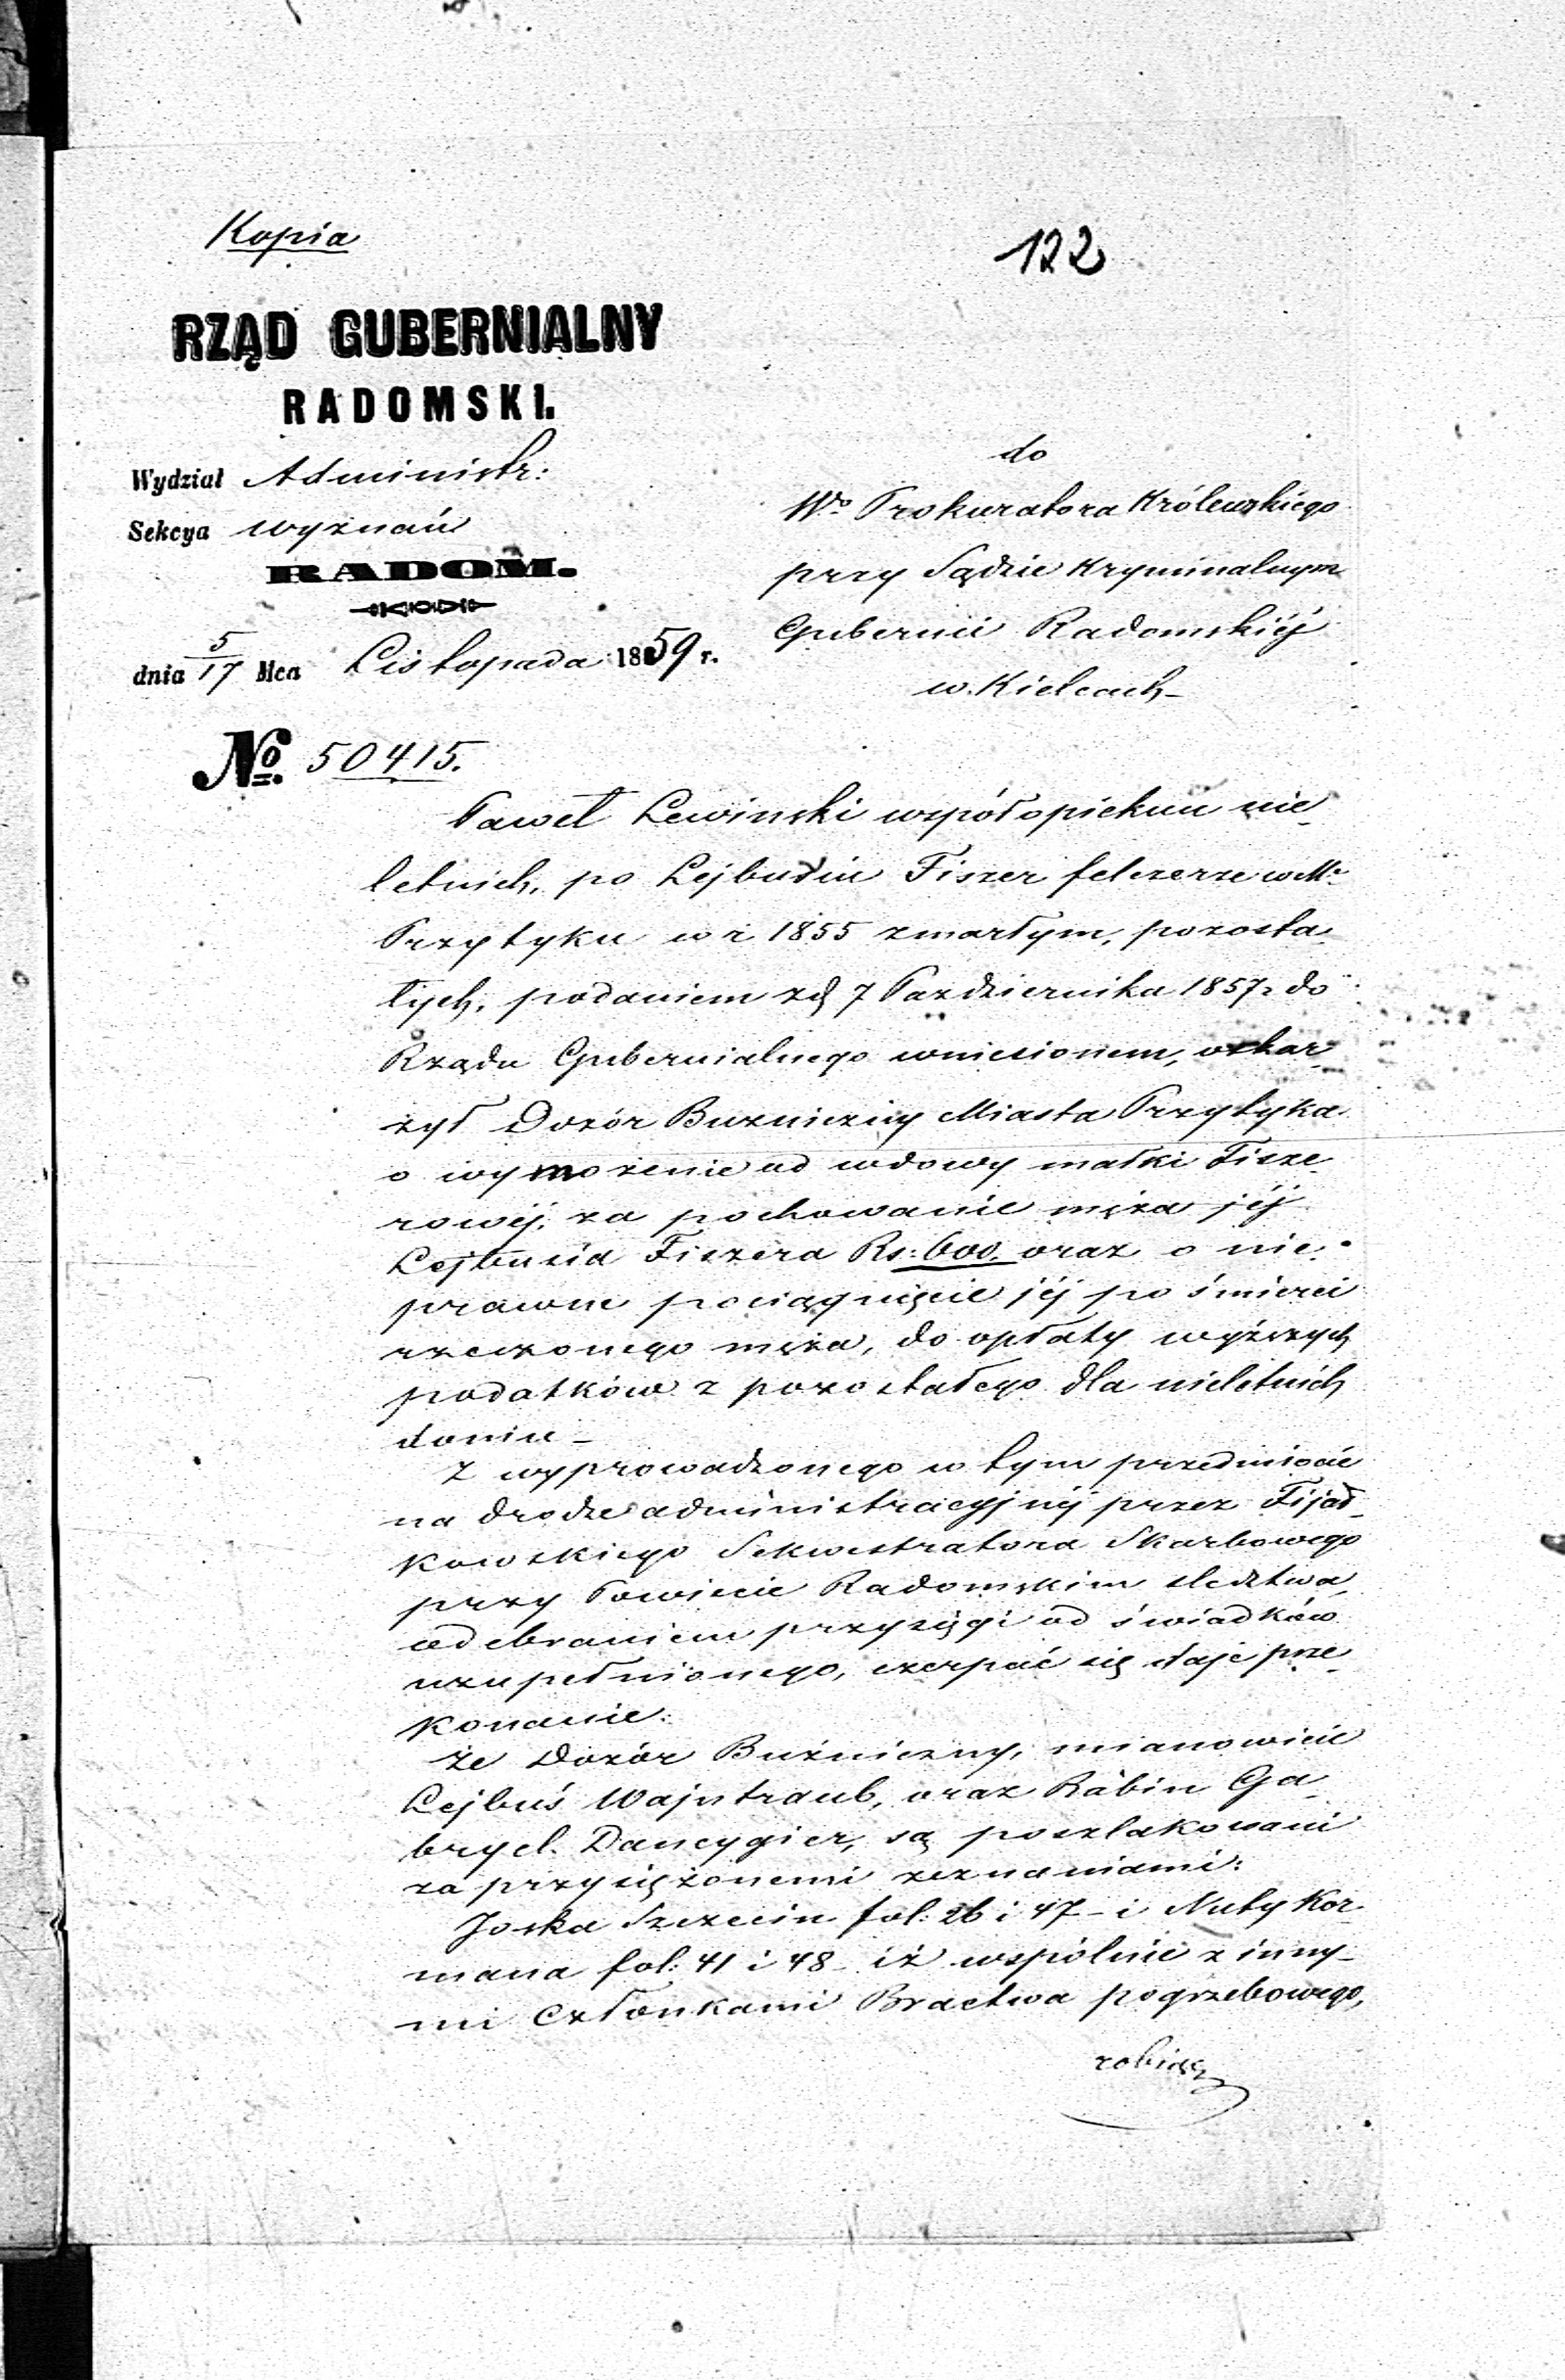 Kopia
122
RZĄD GUBERNIALNY
RADOMSKI.
Wydział Administr:
Sekcya wyznań
RADOM.
dnia 5/17 Mca Listopada 1859 r.
№ 50415.
do
Wo Prokuratora Królewskiego
przy Sądzie Kryminalnym
Gubernii Radomskiéj
w Kielcach -
Paweł Lewinski współopiekun nie_
letnich, po Lejbusiu Fiszer felczerze w Mie
Przytyku w r 1855 zmarłym, pozosta_
łych, podaniem z d 7 Pazdziernika 1857 r do
Rządu Gubernialnego wniesionem, oskar_
żył Dozór Bużniczny Miasta Przytyka
o wymożenie od wdowy matki Fisze_
rowéj, za pochowanie męża jéj
Lejbusia Fiszera Rs: 600. oraz o nie_
prawne pociągnięcie jéj po śmierci
rzeczonego męża, do opłaty wyższych
podatków z pozostałego dla nieletnich
domu -
Z wyprowadzonego w tym przedmiocie
na drodze administracyjnéj przez Fijał_
kowskiego Sekwestratora Skarbowego
przy Powiecie Radomskim sledztwa,
odebraniem przysięgi od świadków
uzupełnionego, czerpać się daje prze_
konanie:
że Dozór Bużniczny, mianowicie
Lejbuś Wajntraub, oraz Rabin Ga_
bryel Dancygier, są poszlakowani
zaprzysiężonemi zeznaniami:
Joska Szczecin fol: 26 i 47 - i Nuty Kor_
mana fol: 41 i 48 - iż wspólnie z inny_
mi Członkami Bractwa pogrzebowego,
robiąc